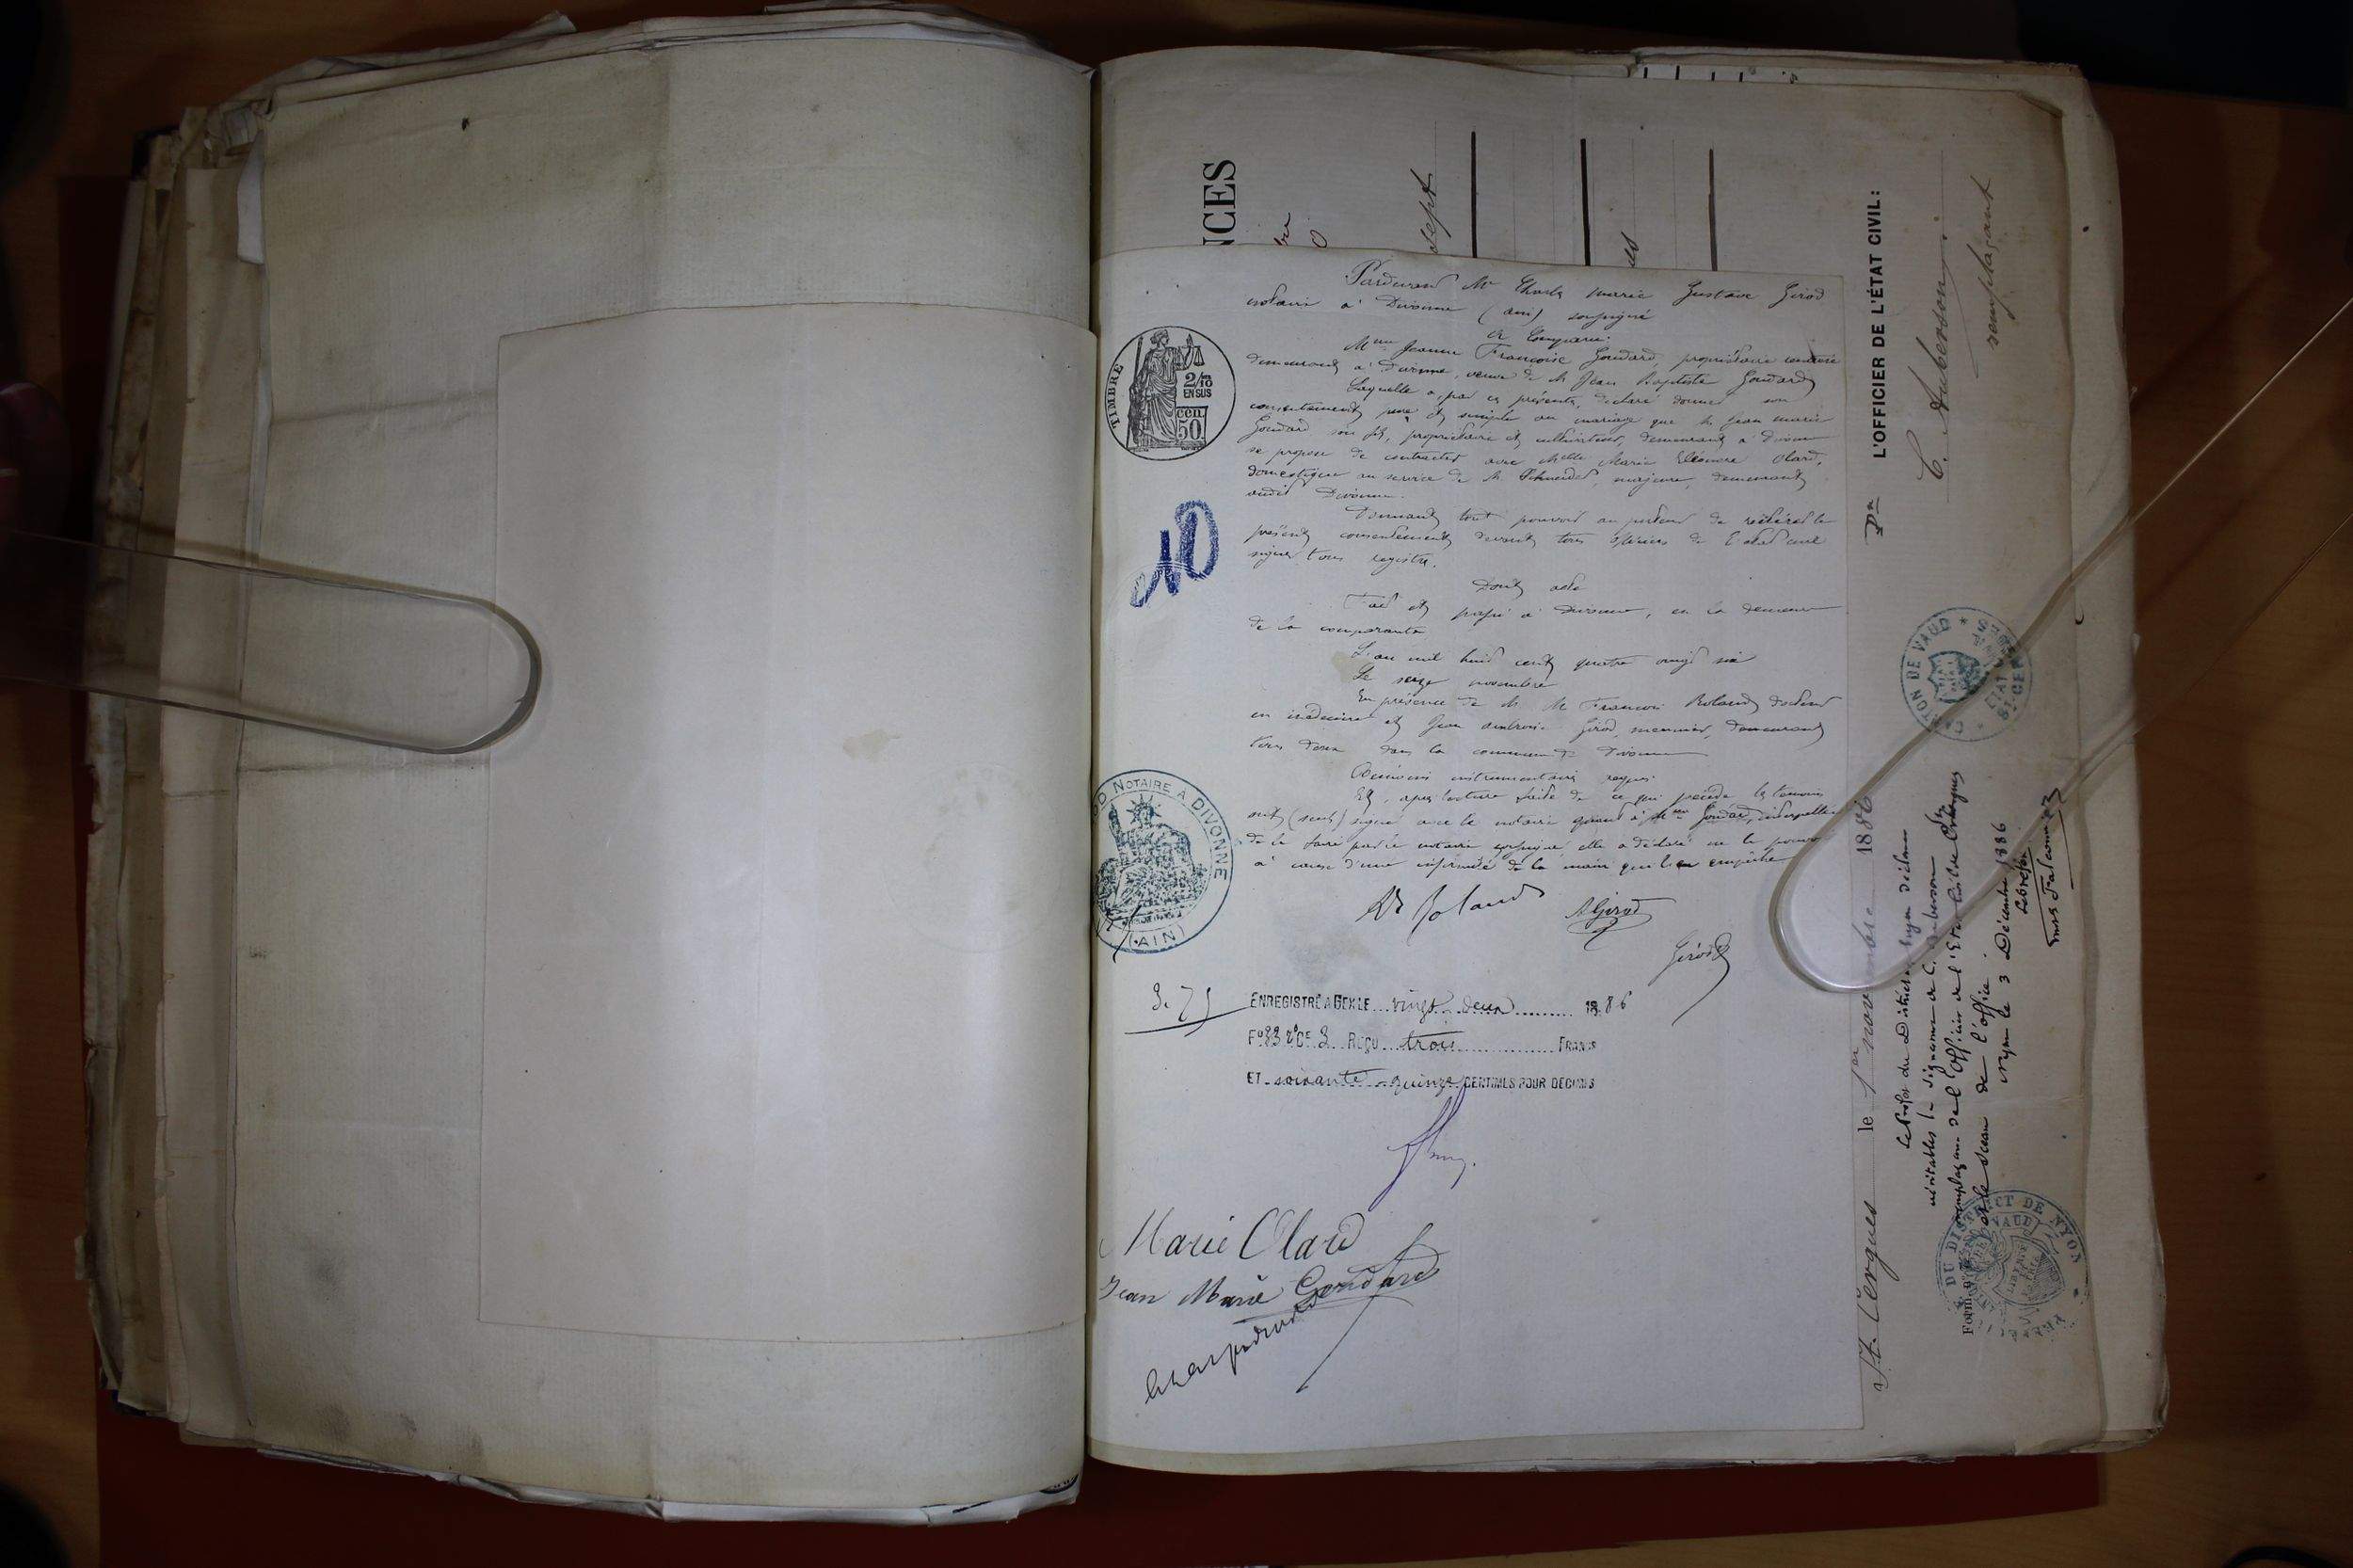 Pardevant Me Charles Marie Gustave Girod
notaire à Divonne (ain) soussigné
A Comparu:
Mme Jeanne Françoise Goudard, propriétaire rentière
demeurant à Divonne, veuve de M Jean Baptiste Goudard
Laquelle a, par ces présentes, déclaré donner son
consentement pure et simple au mariage que M Jean Marie
Goudard son fils, propriétaire et cultivateur, demeurant à Divonne
se propose de contracter avec Melle Marie Eléonore Olard,
domestique au service de M Schneider, majeure, demeurant
audit Divonne.
Donnant tout pouvoir au porteur de réitérer le
présent consentement devant tous officiers de l'Etat civil
signer tous registres.
Dont acte
Fait et passé à Divonne, en la demeure
de la comparante
L'an mil huit cent quatre vingt six
Le seize novembre
En présence de M. M. François Roland docteur
en médecine et Jean Ambroise Girod, meunier, demeurant
tous deux dans la commune de Divonne
Témoins instrumentaires requis.
Et, après lecture faite de ce qui précède les témoins
ont (seuls) signé avec le notaire quant à Mme Goudard, interpellée
de le faire par le notaire soussigné elle a déclaré ne le pouvoir
à cause d'une infirmité de la main qui l'en empêche
Dr Roland AGirod
Girod
TIMBRE
2/10
EN SUS
cen.
50
NOTAIRE A DIVONNE
(AIN)
3.75
ENREGISTRÉ A GEX LE vingt deux 1886
Fo 83 Vo Ce 3 REÇU trois FRANCS
ET soixante quinze CENTIMES POUR DÉCIMES
Marie Olard
Jean Marie Goudard
NCES
sept
St. Cergues le 1er novembre 1886
L'OFFICIER DE L'ÉTAT CIVIL:
C. Auberson
remplaçant
Le Préfet du District de Nyon déclare
véritables la signature de C. Auberson
remplaçant de l'Officier de l'Etat Civil de St Cergues
et le sceau de l'office.
Nyon le 3 Décembre 1886
Le Préfet
CANTON DE VAUD
DU DISTRICT DE NYON